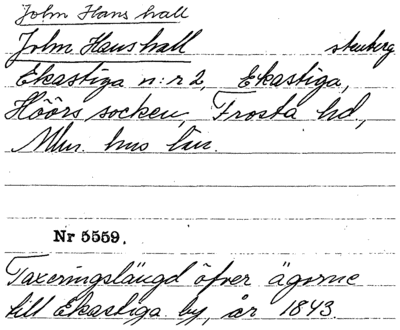 John Hans hall
John Hans hall stenberg
Ekastiga n:r 2, Ekastiga,
Höörs socken, Frosta hd.,
Mlm. hus län.
Nr 5559.
Taxeringslängd öfver ägorne
till Ekastiga by, år 1843.